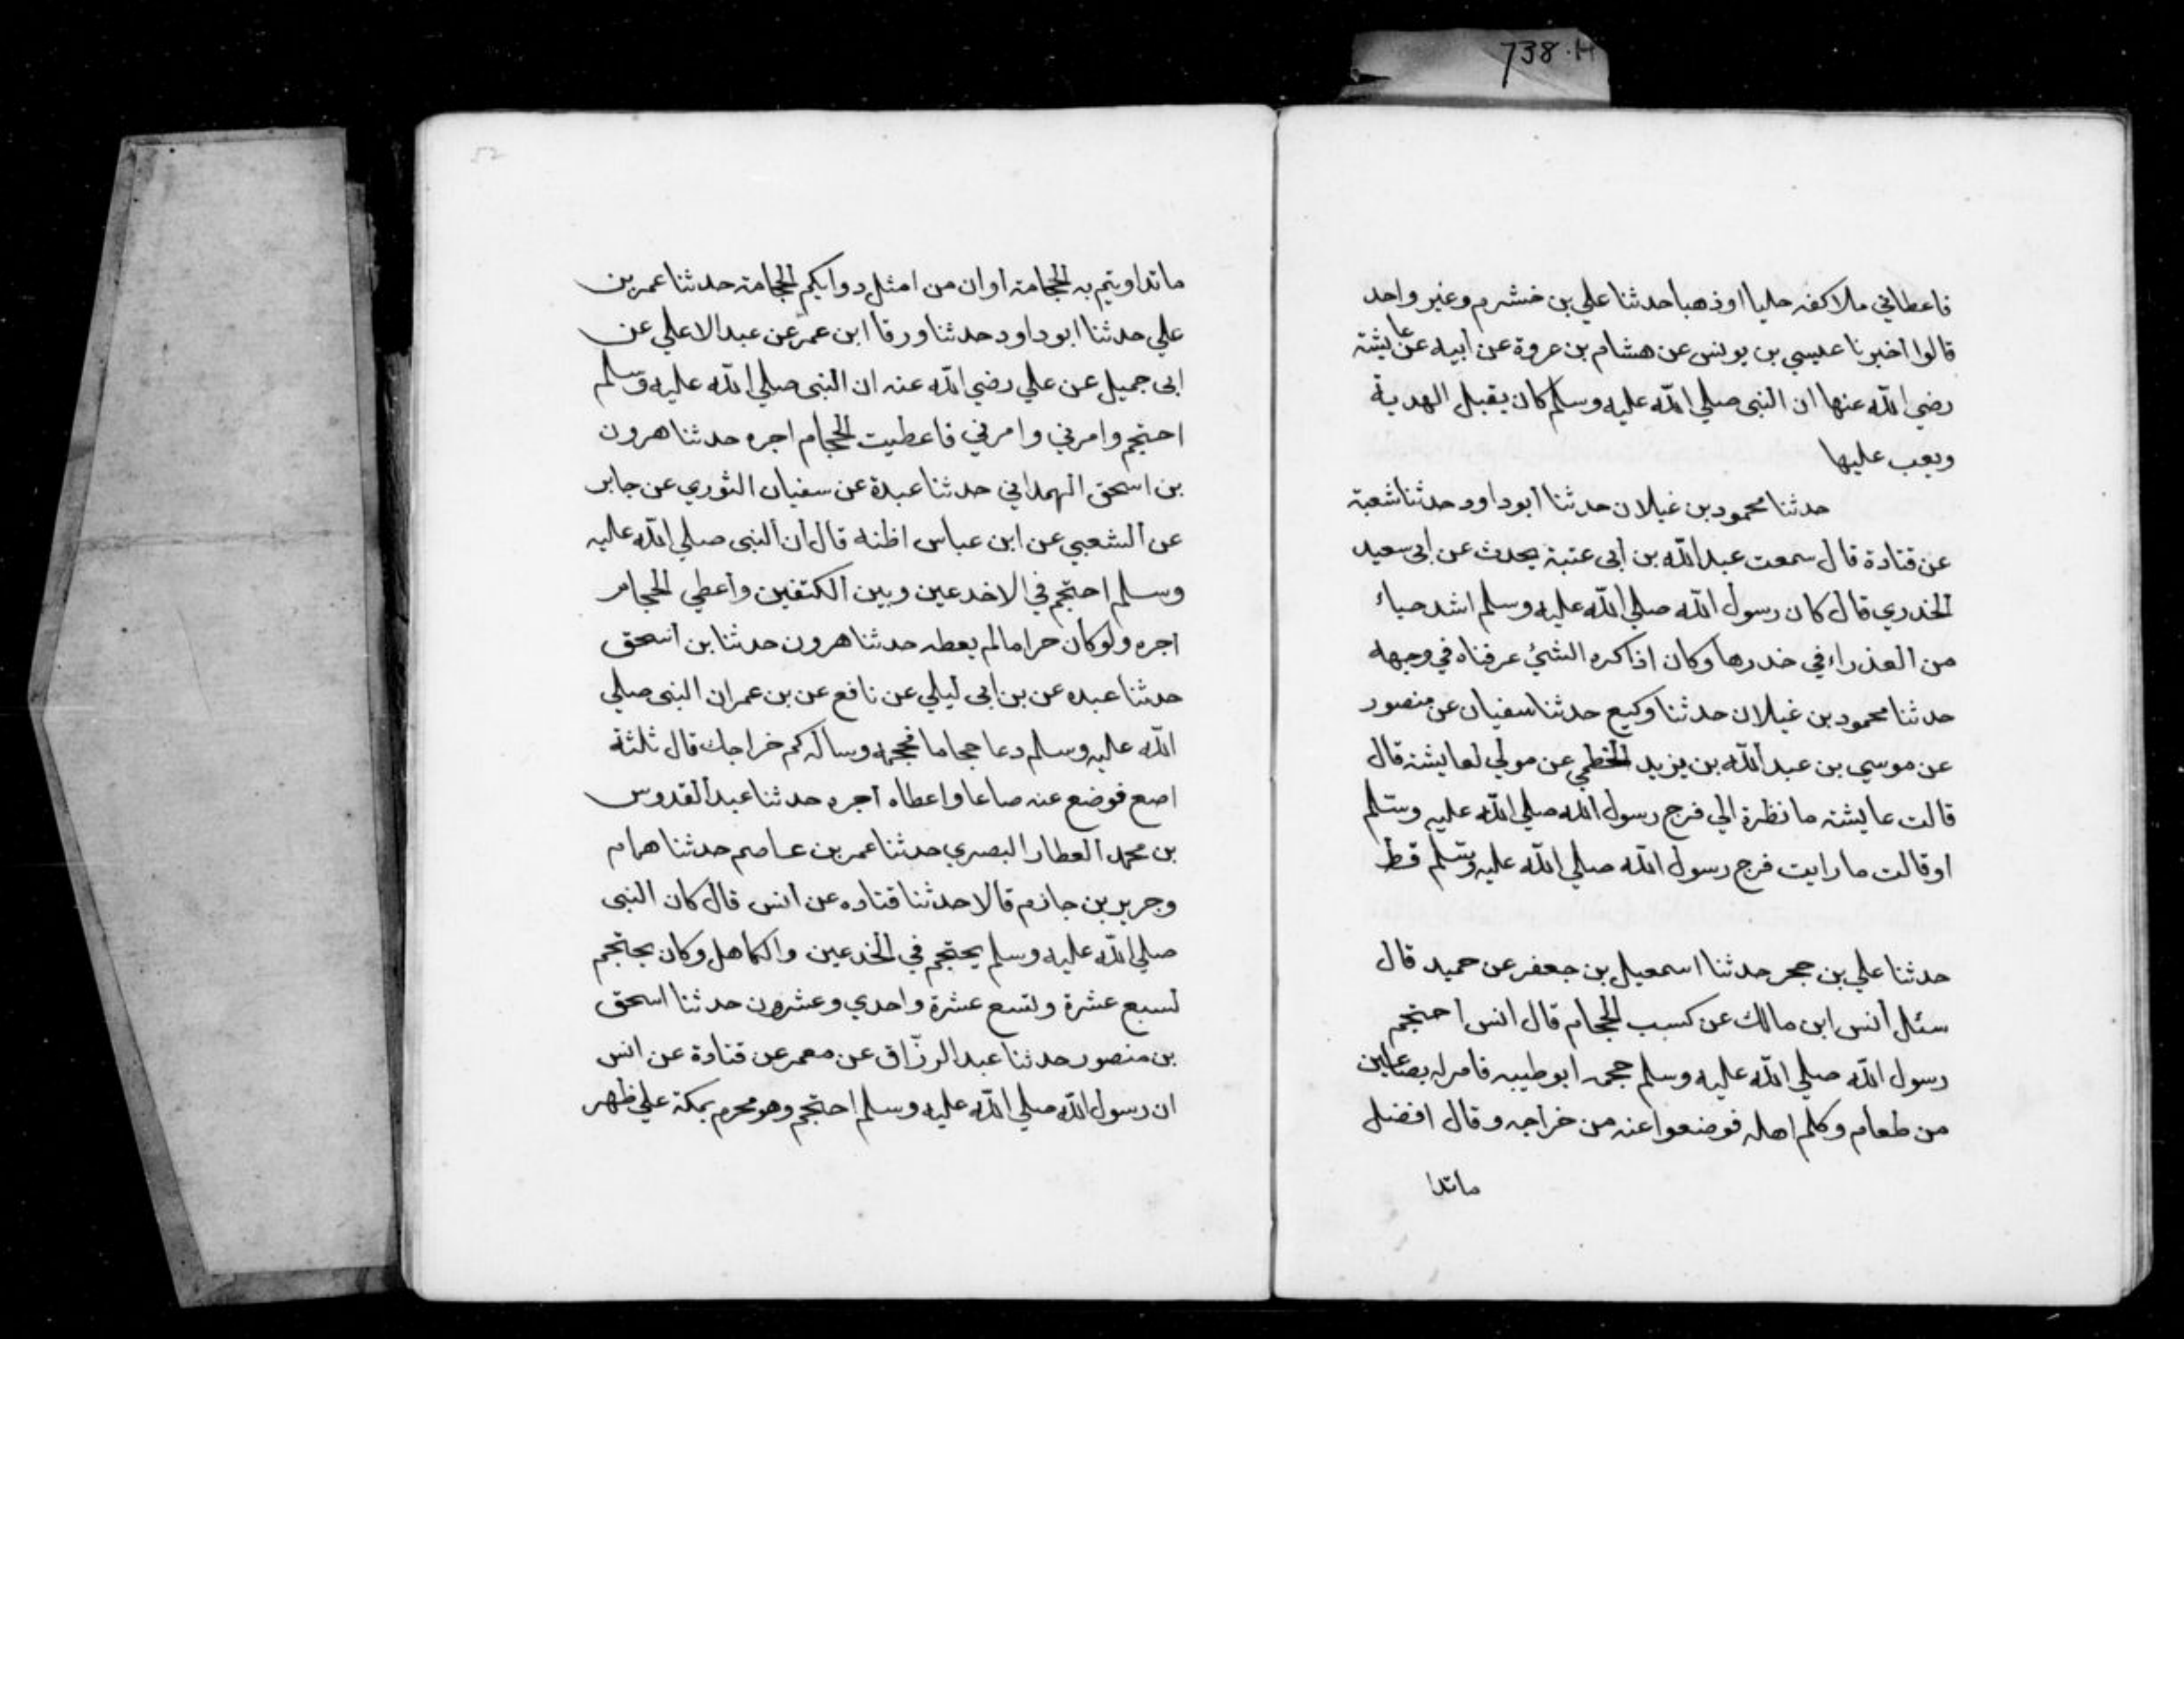 738.H
فاعطاني ملاكفه حليا اوذهبا حدثنا علي بن خشرم وغير واحد
قالوا اخبرنا عيسي بن يونس عن هشام بن عروة عن ابيه عن عايشة
رضي الله عنها ان النبى صلي الله عليه وسلم كان يقبل الهدية
ويعب عليها
حدثنا محمود بن غيلان حدثنا ابو داود حدثنا شعبة
عن قتادة قال سمعت عبد الله بن ابى عتبة يحدث عن ابى سعيد
الخدري قال كان رسول الله صلي الله عليه وسلم اشد حياء
من العذراء في خدرها وكان اذا كره الشئ عرفناه في وجهه
حدثنا محمود بن غيلان حدثنا وكيع حدثنا سفيان عن منصور
عن موسي بن عبد الله بن يزيد الخطمي عن مولي لعايشة قال
قالت عايشة ما نظرة الي فرج رسول الله صلي الله عليه وسلم
او قالت ما رايت فرج رسول الله صلي الله عليه وسلم قط
حدثنا علي بن حجر حدثنا اسمعيل بن جعفر عن حميد قال
سئل انس ابن مالك عن كسب الحجام قال انس احتجم
رسول الله صلي الله عليه وسلم حجمه ابو طيبه فامر له بصاعين
من طعام وكلم اهله فوضعوا عنه من خراجه وقال افضل
ماتدا
52
ماتداويتم به الحجامة او ان من امثل دوايكم الحجامة حدثنا عمر بن
علي حدثنا ابو داود حدثنا ورقا ابن عمر عن عبد الاعلي عن
ابى جميل عن علي رضي الله عنه ان النبى صلي الله عليه وسلم
احتجم وامرني وامرني فاعطيت الحجام اجره حدثنا هرون
بن اسحق الهمداني حدثنا عبدة عن سفيان الثوري عن جابر
عن الشعبي عن ابن عباس اظنه قال ان النبى صلي الله عليه
وسلم احتجم في الاخدعين وبين الكتفين واعطي الحجام
اجره ولو كان حراما لم يعطه حدثنا هرون حدثنا بن اسحق
حدثنا عبده عن بن ابى ليلي عن نافع عن بن عمر ان النبى صلي
الله عليه وسلم دعا حجاما فحجمه وساله كم خراجك قال ثلثة
اصع فوضع عنه صاعا واعطاه اجره حدثنا عبد القدوس
بن محمد العطار البصري حدثنا عمر بن عاصم حدثنا همام
وجرير بن جازم قالا حدثنا قتاده عن انس قال كان النبى
صلي الله عليه وسلم يحتجم في الخدعين والكاهل وكان يحتجم
لسبع عشرة وتسع عشرة واحدي وعشرون حدثنا اسحق
بن منصور حدثنا عبد الرزاق عن معمر عن قتادة عن انس
ان رسول الله صلي الله عليه وسلم احتجم وهو محرم بمكة علي ظهر